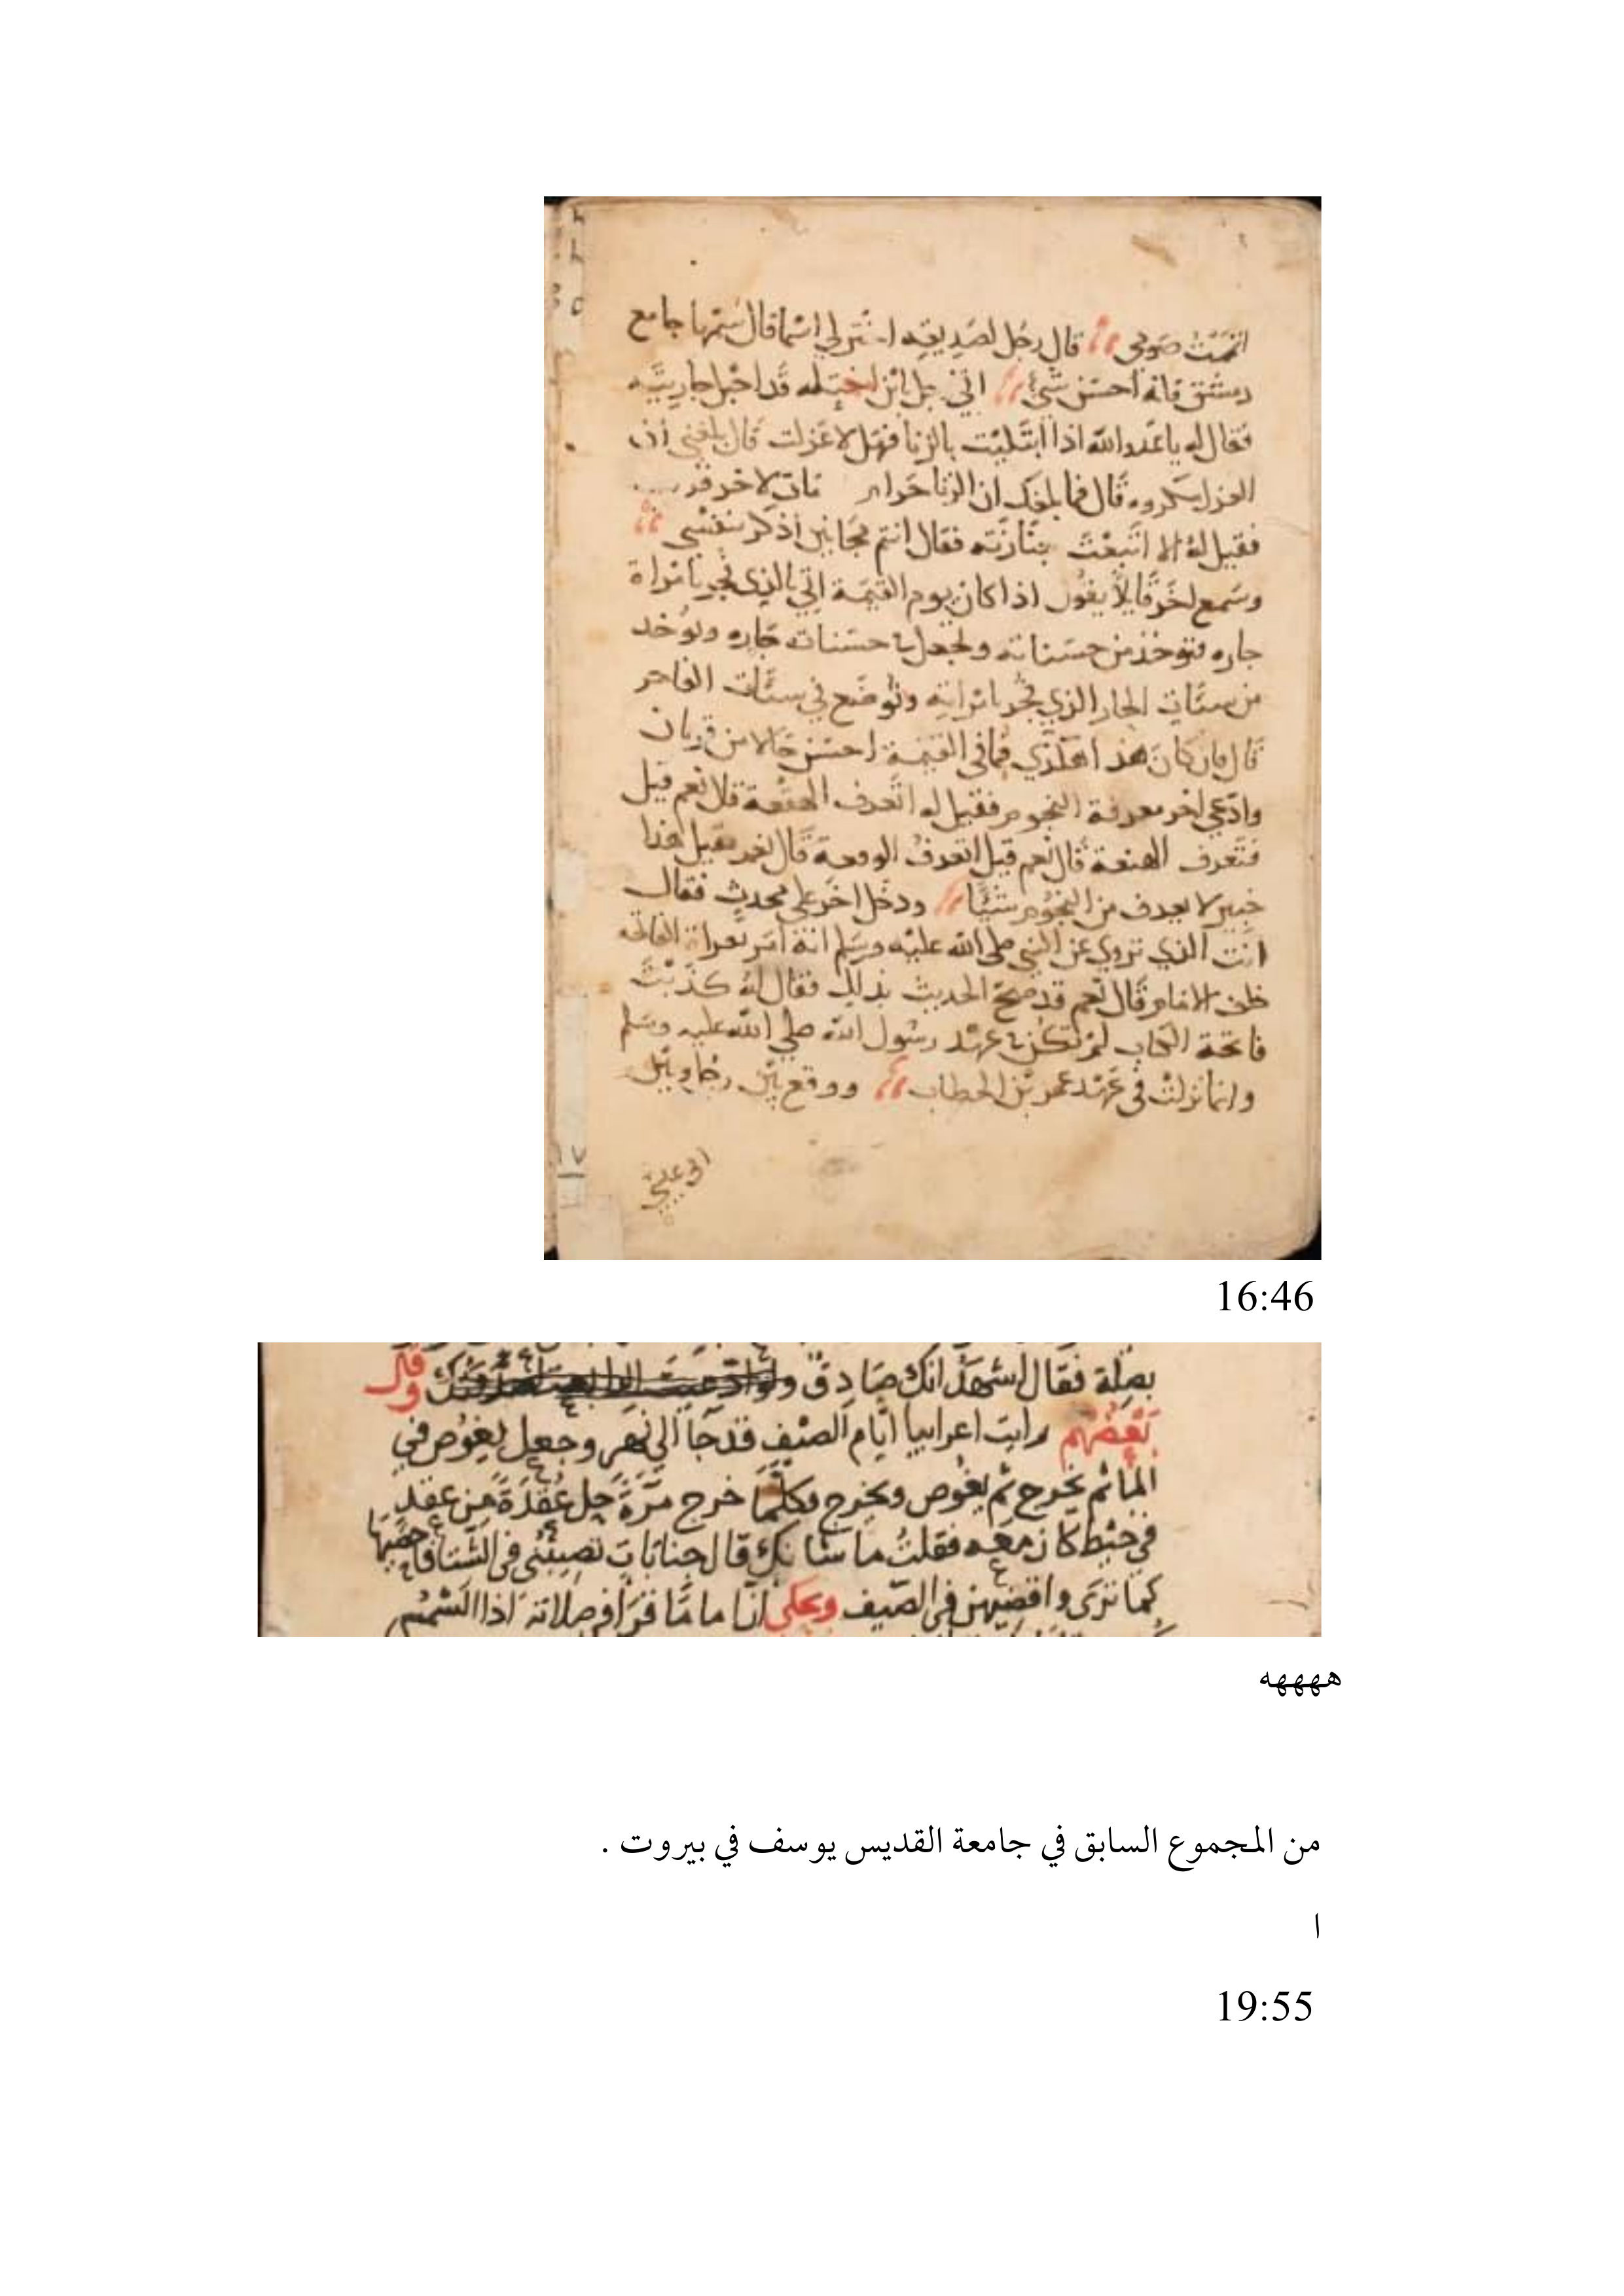 اتممت صومي قال رجل لصديقه اشتر لي اسما قال سمها جامع
دمشق فانه احسن شيء اتي رجل ابن اخت له قد احبل جاريته
فقال له يا عدو الله اذا ابتليت بالزنا فهل لا عزلت قال بلغني ان
العزل مكروه قال فما بلغك ان الزنا حرام مات لاخر
فقيل له الا اتبعت جنازته فقال انتم مجانين اذكر بنفسي
وسمع اخر قايلا يقول اذا كان يوم القيمة اتي بالذي فجر بامراة
جاره فتوخذ من حسناته وتجعل في حسنات جاره وتوخد
من سيات الجار الذي فجر بامراته وتوضع في سيات الفاجر
قال فان كان هذا هكذي فما في القيمة احسن حالا من
وادعي اخر معرفة النجوم فقيل له اتعرف الهقعة قال نعم قيل
فتعرف الهنعة قال نعم قيل اتعرف الوقعة قال نعم فقيل هذا
لا يعرف من النجوم شيئا ودخل اخر علي محدث فقال
انت الذي تروي عن النبي صلى الله عليه وسلم انه امر بقراة الفاتحه
خلف الامام قال نعم قد صح الحديث بذلك فقال له كذبت
فاتحة الكتاب لم تكن في عهد رسول الله صلي الله عليه وسلم
وانما نزلت في عهد عمر بن الخطاب ووقع بين وبين
ابي علي
١٧
16:46
بصلة فقال اشهد انك صادق وقال
بعضهم رايت اعرابيا ايام الصيف قد جا الي نهر وجعل يغوص في
الما ثم يخرج ثم يغوص ويخرج وكلما خرج مرة حل عقدة من عقد
في خيط كان معه فقلت ما شانك قال جنابات تصيبني في الشتا فاحصيها
كما تري واقضيهن في الصيف وحكي ان اماما قرا في صلاته اذا الشمس
هههههه
من المجموع السابق في جامعة القديس يوسف في بيروت .
ا
19:55